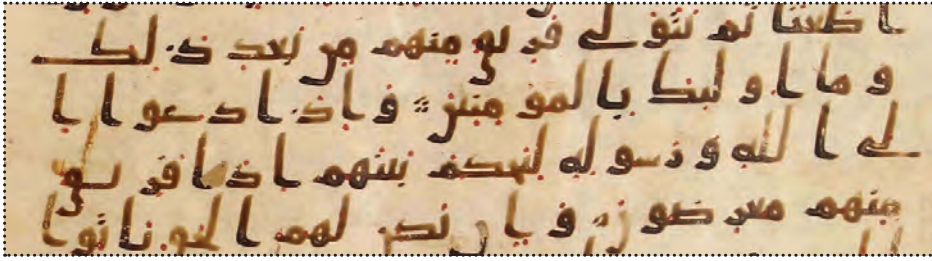 اطعنا ثم يتولى فريق منهم من بعد ذلك
وما اولئك بالمومنين واذا دعوا ا
لى الله ورسوله ليحكم بينهم اذا فريق
منهم معرضون وان يكن لهم الحق ياتوا